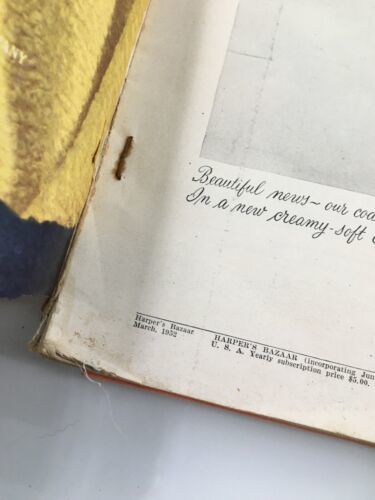 ANY
Beautiful news~ our coa
In a new creamy-soft
Harper's Bazaar
March, 1952
HARPER'S BAZAAR (incorporating Jun
U. S. A. Yearly subscription price $5.00.